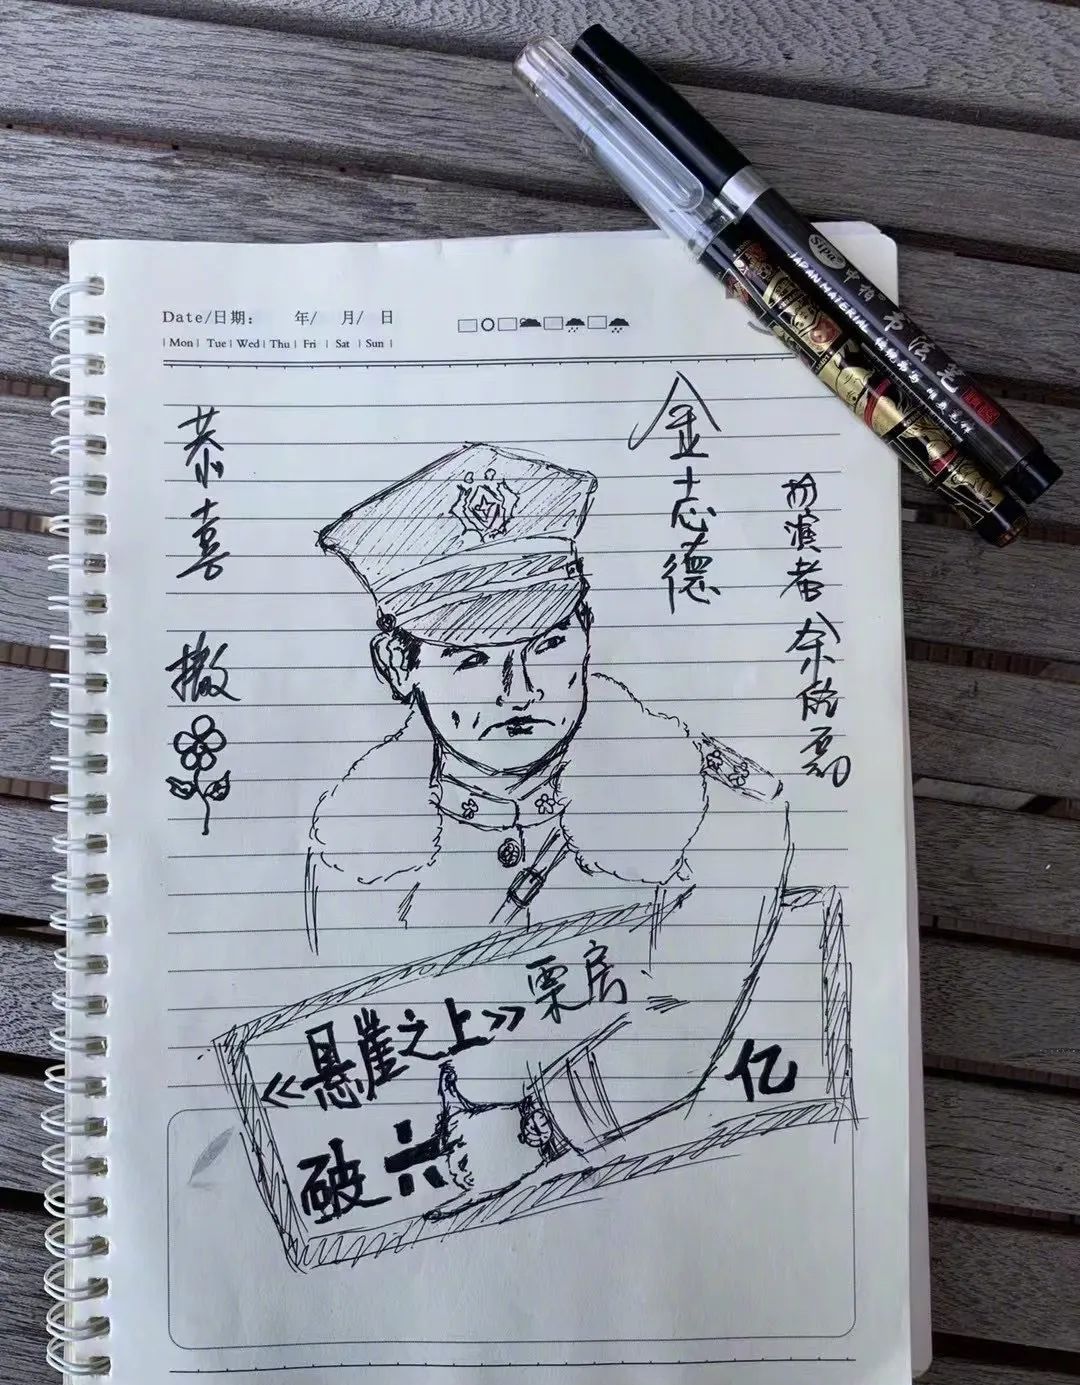 Date/日期: 年/ 月/ 日
| Mon | Tue | Wed | Thu | Fri | Sat | Sun |
恭喜 撒
金志德
扮演者 余皑磊
《悬崖之上》票房
破六 亿
Sipa 中柏 书法笔
JAPAN MATERIAL